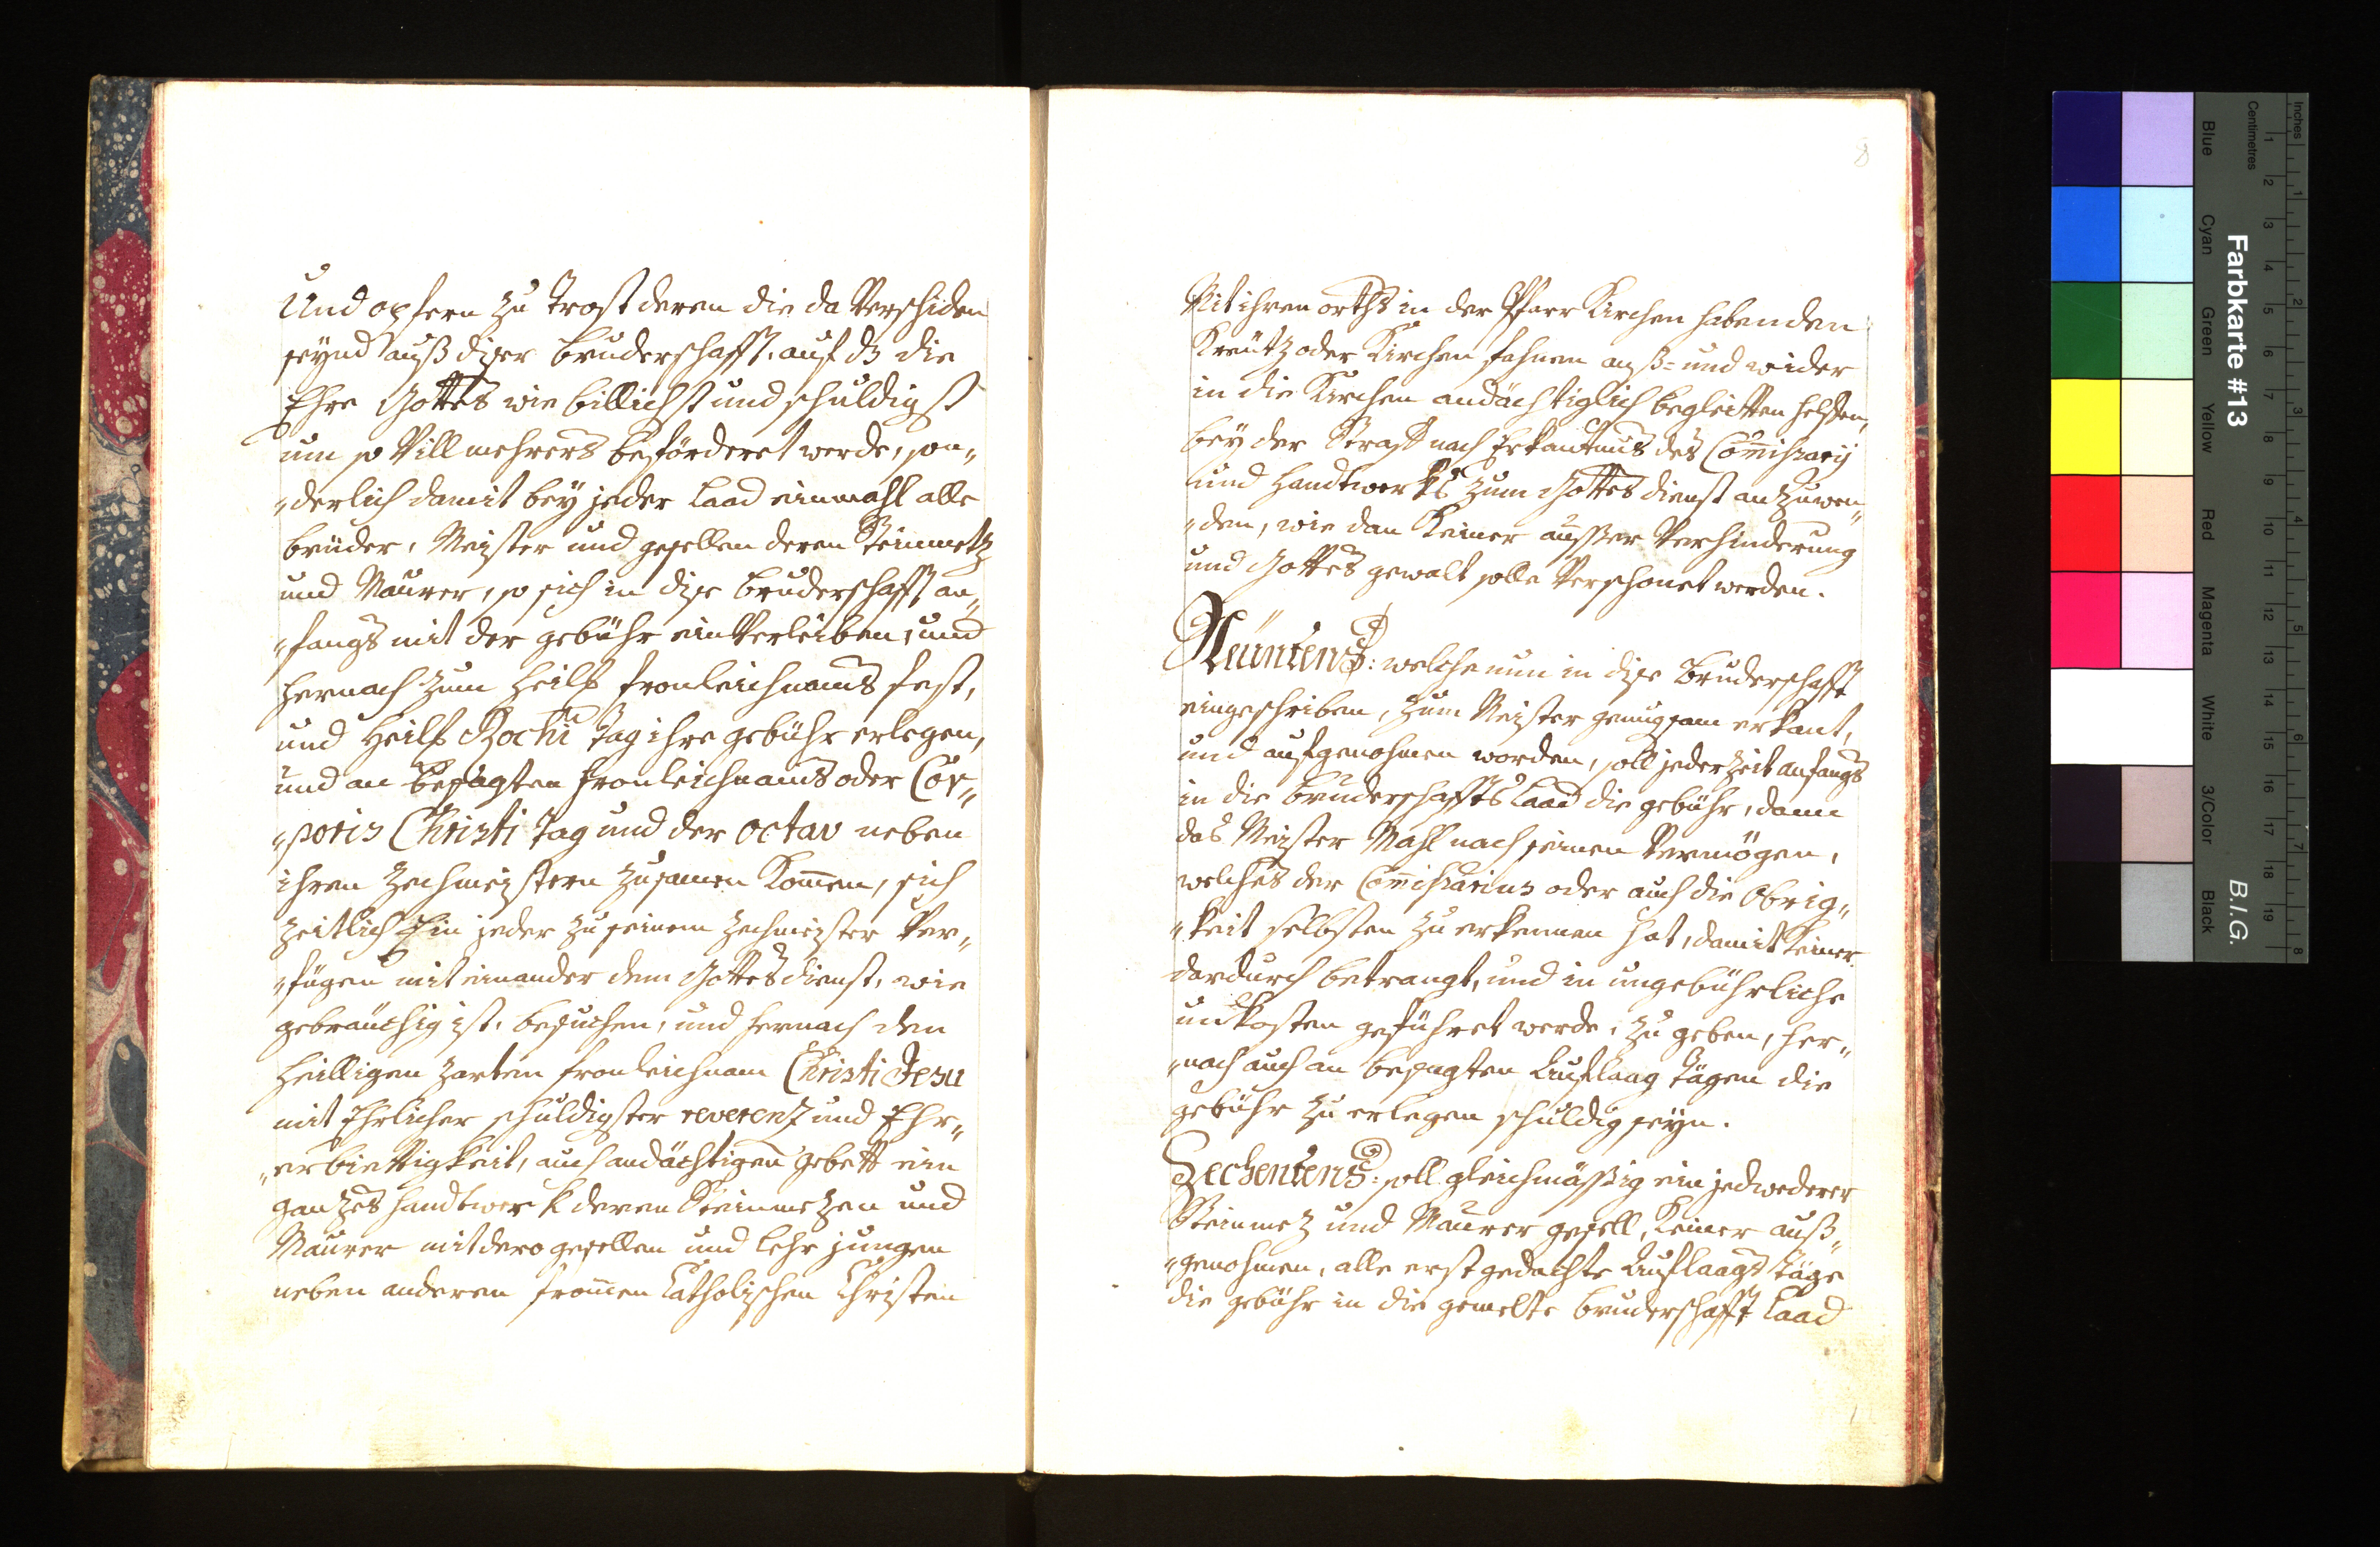 Und opfern zu Trost deren die da Verschiden
seynd auß diser bruderschafft. auf dz die
Ehre Gottes wie billichst und schuldigst
um so Vill mehrers befördert werde, son„
„derlich damit bey jeder Laad einmahl alle
brüder, Meister und gesellen deren Steinmetz
und Maurer, so sich in dise bruderschafft an„
„fangs mit der gebühr ein Verleiben, und
hernach zum Heilß fronleichnams fest,
und Heilß Rochi tag ihre gebühr erlegen,
und an besagten fronleichnams oder Cor„
„poris Christi Tag und der octav neben
ihren Zechmeistern zusamen Komen, sich
zeitlich Ein jeder zu seinem Zechmeister Ver„
„fügen mit einander dem Gottesdienst, wie
gebräuchig ist, besuchen, und hernach den
heilligen zarten fronleichnam Christi Jesu
mit Ehrlicher schuldigster reverenz und Ehr„
„erbiettigkeit, auch andächtigen gebett ein
gantzes handtwerk deren Steinmetzen und
Maurer mit dero gesellen und Lehr jungen
neben anderen fromen Catholischen Christen
8
Mit ihren orths in der Pfarr Kirchen habenden
Kreütz oder Kirchen fahnen auß= und wider
in die Kirchen andächtiglich begleitten helffen,
bey der Straff nach Erkantnus des Comihsarij
und Handtwerks zum Gottes dienst anzuwen„
„den, wie dan Keiner ausser Verhinderung
und Gottes gewalt solle Verschonet werden.
Neüntens: welche nun in dise Bruderschafft
eingeschriben, zum Meister genugsam erkant,
und aufgenohmen worden, soll jederzeit anfangs
in die bruderschaffts Laad die gebühr, dann
das Meister Mahl nach seinen Vermögen,
welches der Comihsarius oder auch die Obrig„
„keit selbsten zu erkennen hat, damit keiner
dardurch betrangt, und in ungebührliche
unkosten geführet werde, zu geben, her„
„nach auch an besagten Auflaag Tägen die
gebühr zu erlegen schuldig seyn.
Zechentens: soll gleichmässig ein jedwederer
Steinmetz und Maurer gesell, Keiner auß„
„genohmen, alle erst gedachte Auflaags täge
die gebühr in die gemelte bruderschafft Laad
Farbkarte #13
B.I.G.
Inches
Centimetres
1 2 3 4 5 6 7 8
1 2 3 4 5 6 7 8 9 10 11 12 13 14 15 16 17 18 19
Blue
Cyan
Green
Yellow
Red
Magenta
White
3/Color
Black